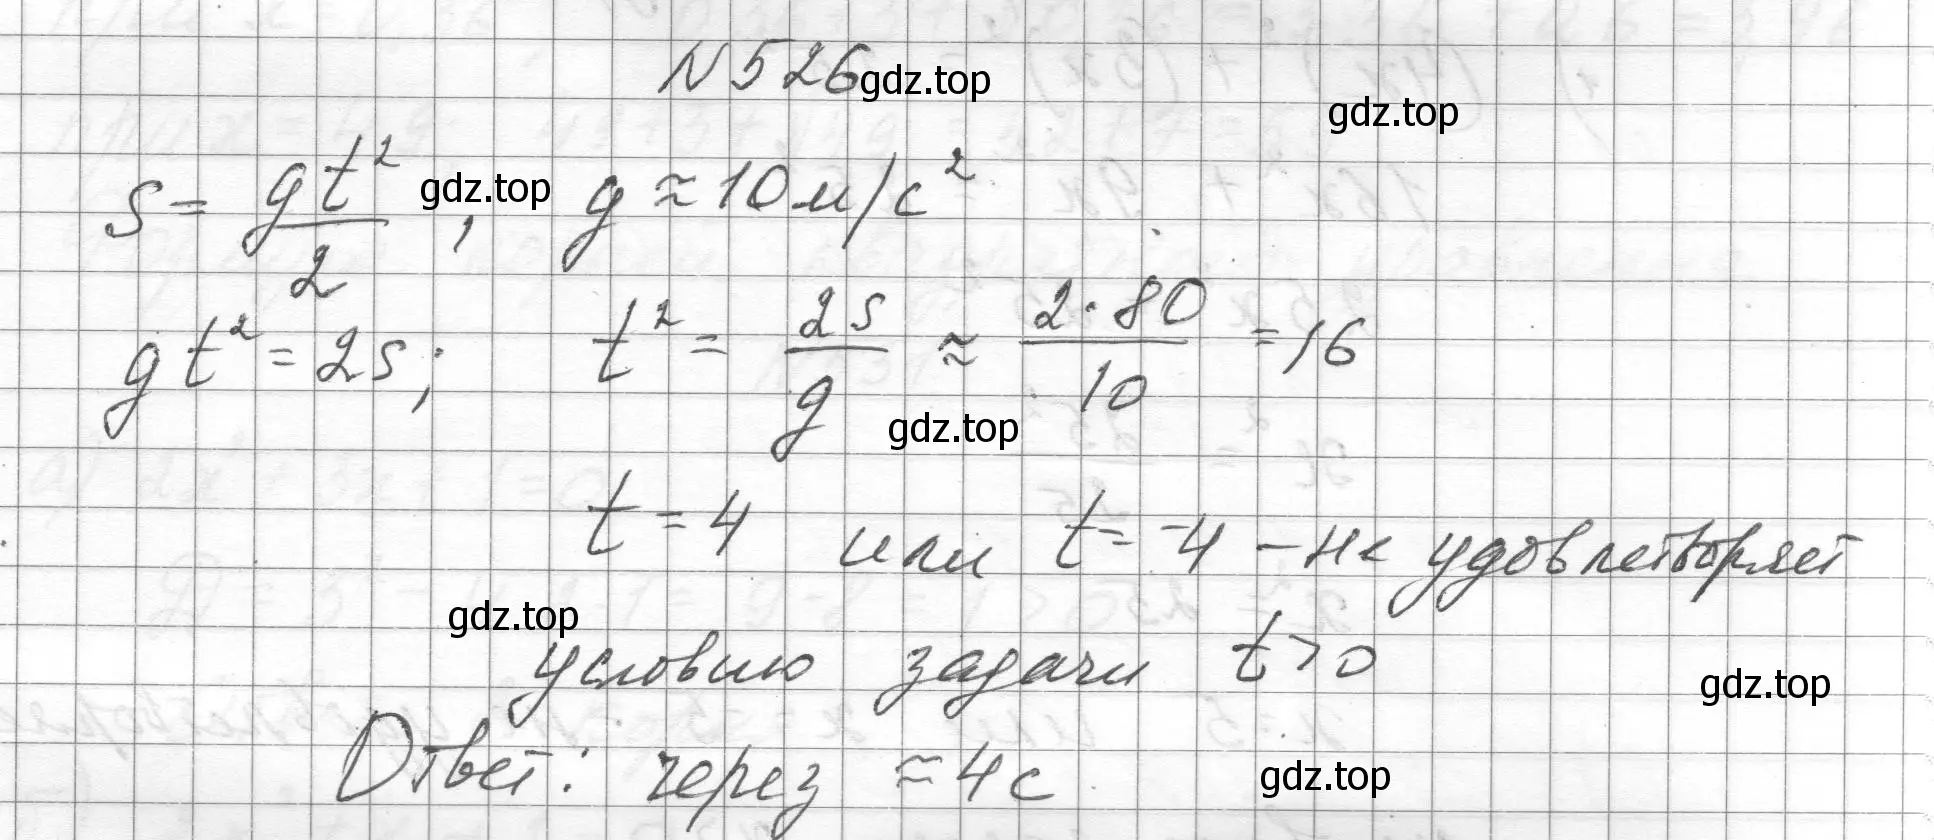 N 526 gdz.top
gdz.top
s = gt²/2 , gdz.top g ≈ 10 м/с²
gt² = 2s; t² = 2s/g ≈ 2·80/10 = 16
gdz.top
t = 4 или t = -4 – не удовлетворяет
gdz.top
условию задачи t > 0
gdz.top
Ответ: через ≈ 4 с
gdz.top